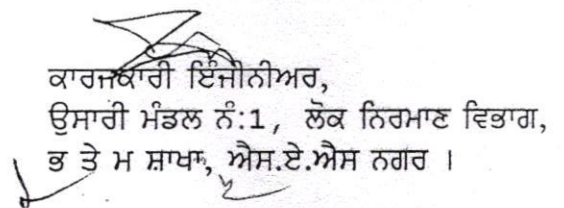 ਕਾਰਜਕਾਰੀ ਇੰਜੀਨੀਅਰ,
ਉਸਾਰੀ ਮੰਡਲ ਨੰ:1, ਲੋਕ ਨਿਰਮਾਣ ਵਿਭਾਗ,
ਭ ਤੇ ਮ ਸ਼ਾਖਾ, ਐਸ.ਏ.ਐਸ ਨਗਰ ।